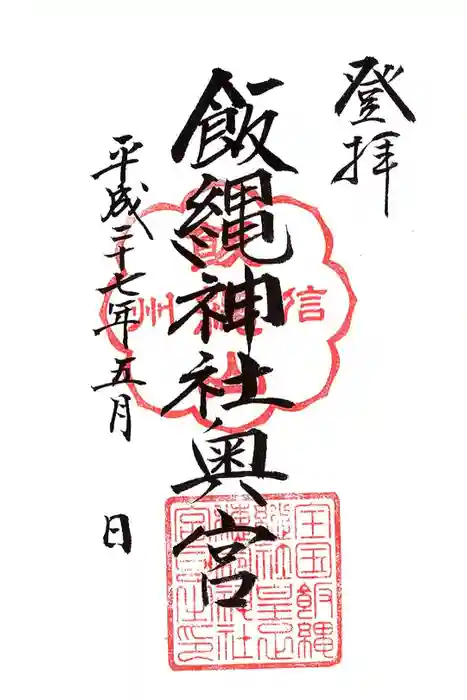 登拝
飯縄神社奥宮
平成二十七年五月 日
信州
飯縄山